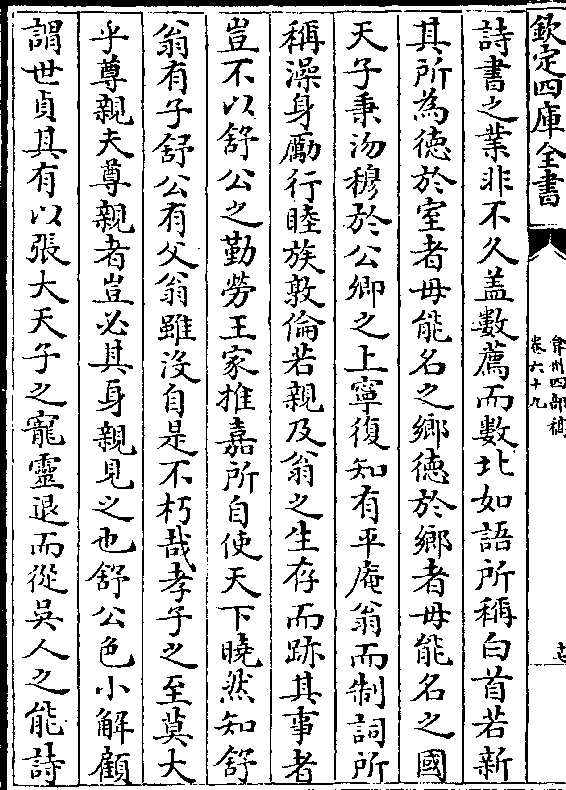 欽定四庫全書
弇州四部稿
卷六十九
詩書之業非不久盖數薦而數北如語所稱白首若新
其所為徳於室者毋能名之鄉徳於鄉者毋能名之國
天子秉沕穆於公卿之上寧復知有平庵翁而制詞所
稱澡身勵行睦族敦倫若親及翁之生存而跡其事者
豈不以舒公之勤勞王家推嘉所自使天下曉然知舒
翁有子舒公有父翁雖沒自是不朽哉孝子之至莫大
乎尊親夫尊親者豈必其身親見之也舒公色小解顧
謂世貞具有以張大天子之寵靈退而從吳人之能詩